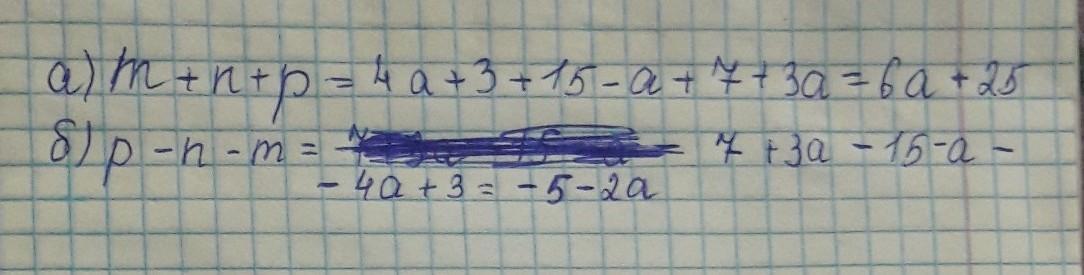 а) m + n + p = 4a + 3 + 15 - a + 7 + 3a = 6a + 25
б) p - n - m = 7 + 3a - 15 - a -
- 4a + 3 = - 5 - 2a